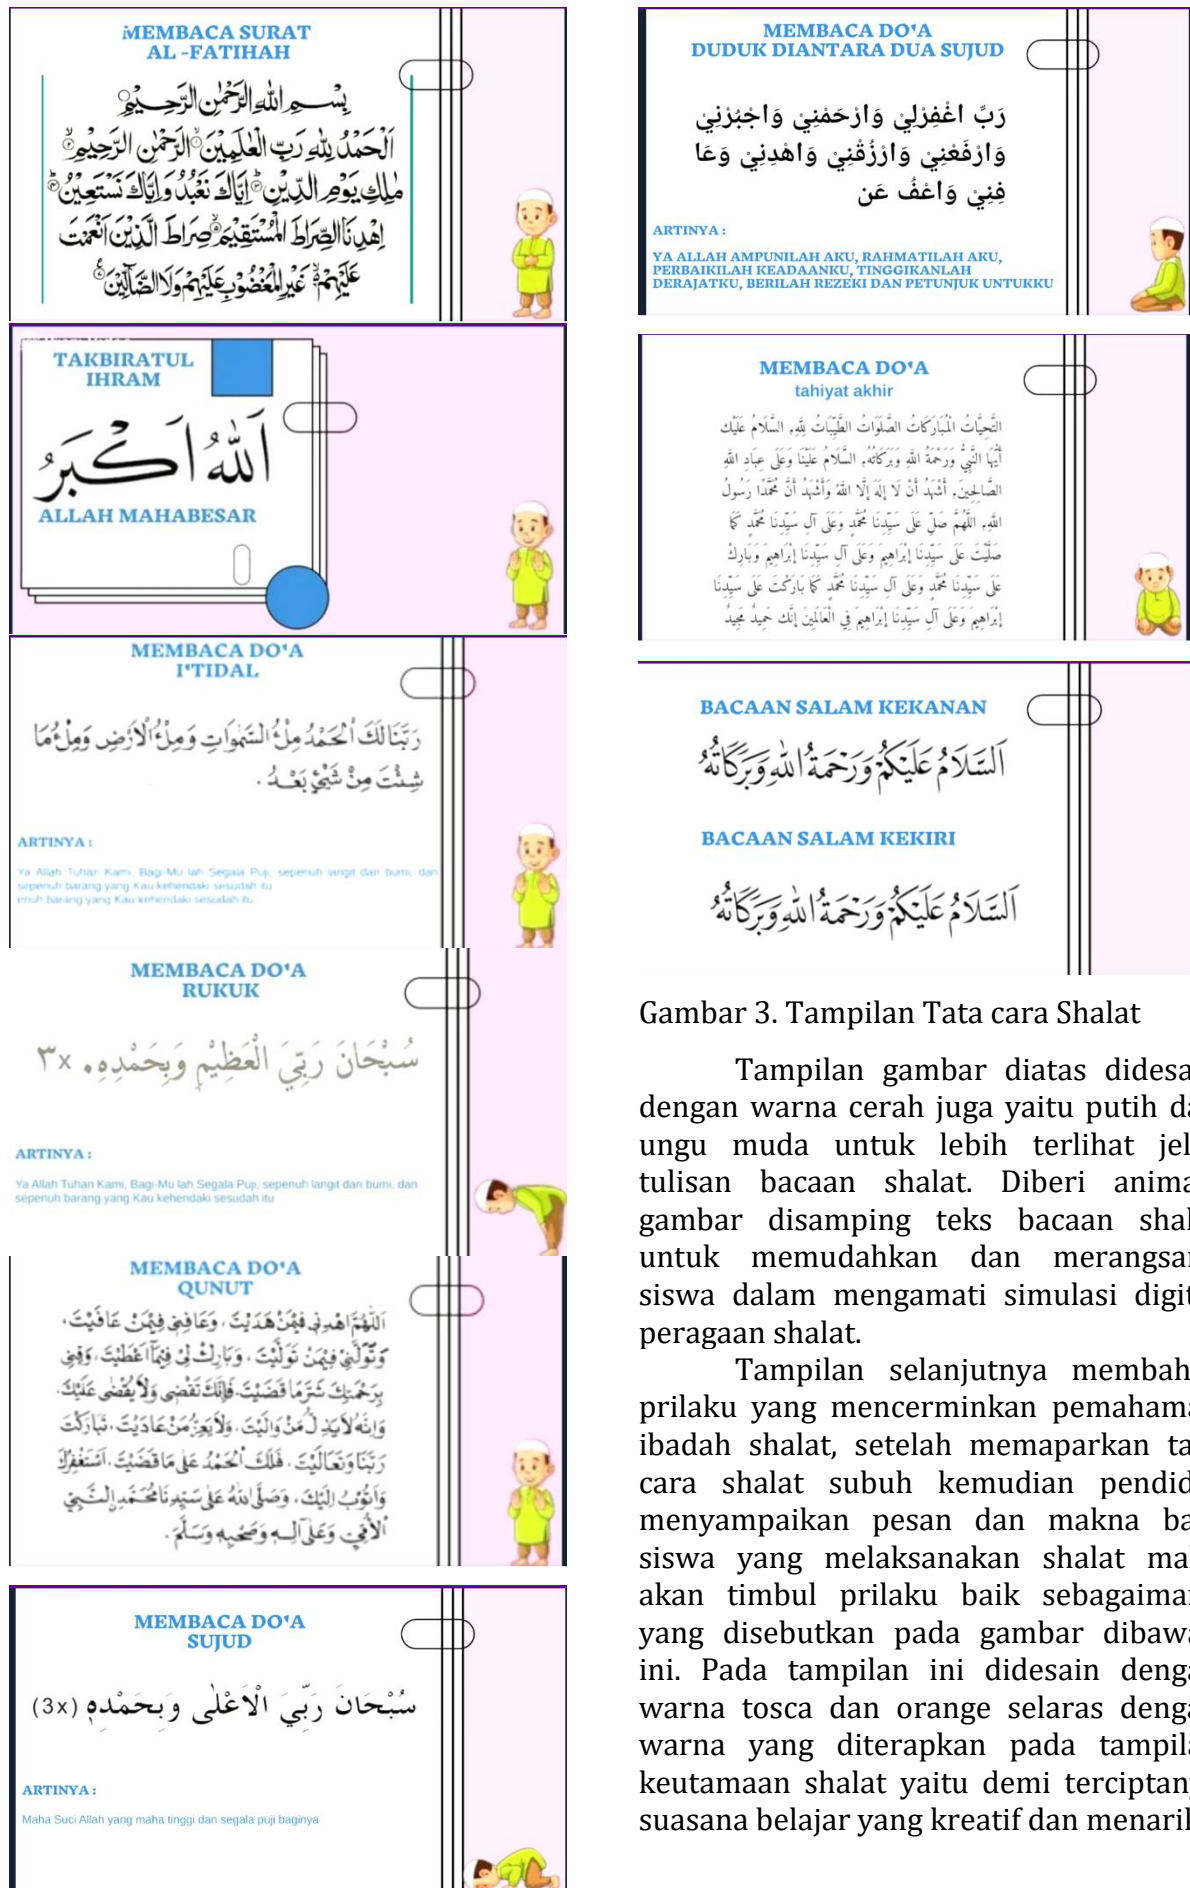 MEMBACA SURAT
AL -FATIHAH
بِسْمِ اللهِ الرَّحْمٰنِ الرَّحِيْمِ
اَلْحَمْدُ لِلّٰهِ رَبِّ الْعٰلَمِيْنَ الرَّحْمٰنِ الرَّحِيْمِ
مٰلِكِ يَوْمِ الدِّيْنِ اِيَّاكَ نَعْبُدُ وَاِيَّاكَ نَسْتَعِيْنُ
اِهْدِنَا الصِّرَاطَ الْمُسْتَقِيْمَ صِرَاطَ الَّذِيْنَ اَنْعَمْتَ
عَلَيْهِمْ غَيْرِ الْمَغْضُوْبِ عَلَيْهِمْ وَلَا الضَّآلِّيْنَ
TAKBIRATUL
IHRAM
اَللهُ اَكْبَرُ
ALLAH MAHABESAR
MEMBACA DO'A
I'TIDAL
رَبَّنَا لَكَ الْحَمْدُ مِلْءُ السَّمٰوَاتِ وَمِلْءُ الْاَرْضِ وَمِلْءُ مَا
شِئْتَ مِنْ شَيْءٍ بَعْدُ .
ARTINYA :
Ya Allah Tuhan Kami, Bagi-Mu lah Segala Puji, sepenuh langit dan bumi, dan
sepenuh barang yang Kau kehendaki sesudah itu
enuh barang yang Kau kehendaki sesudah itu
MEMBACA DO'A
RUKUK
سُبْحَانَ رَبِّيَ الْعَظِيْمِ وَبِحَمْدِهِ. ٣x
ARTINYA :
Ya Allah Tuhan Kami, Bagi-Mu lah Segala Puji, sepenuh langit dan bumi, dan
sepenuh barang yang Kau kehendaki sesudah itu
MEMBACA DO'A
QUNUT
اَللّٰهُمَّ اهْدِنِيْ فِيْمَنْ هَدَيْتَ، وَعَافِنِيْ فِيْمَنْ عَافَيْتَ،
وَتَوَلَّنِيْ فِيْمَنْ تَوَلَّيْتَ، وَبَارِكْ لِيْ فِيْمَا اَعْطَيْتَ، وَقِنِيْ
بِرَحْمَتِكَ شَرَّمَا قَضَيْتَ، فَاِنَّكَ تَقْضِيْ وَلَا يُقْضٰى عَلَيْكَ.
وَاِنَّهُ لَا يَذِلُّ مَنْ وَالَيْتَ، وَلَا يَعِزُّ مَنْ عَادَيْتَ، تَبَارَكْتَ
رَبَّنَا وَتَعَالَيْتَ، فَلَكَ الْحَمْدُ عَلٰى مَا قَضَيْتَ، اَسْتَغْفِرُكَ
وَاَتُوْبُ اِلَيْكَ، وَصَلَّى اللهُ عَلٰى سَيِّدِنَا مُحَمَّدٍ النَّبِيِّ
الْاُمِّيِّ وَعَلٰى آلِهِ وَصَحْبِهِ وَسَلَّمَ.
MEMBACA DO'A
SUJUD
سُبْحَانَ رَبِّيَ الْاَعْلٰى وَبِحَمْدِهِ (3x)
ARTINYA :
Maha Suci Allah yang maha tinggi dan segala puji baginya
MEMBACA DO'A
DUDUK DIANTARA DUA SUJUD
رَبِّ اغْفِرْلِيْ وَارْحَمْنِيْ وَاجْبُرْنِيْ
وَارْفَعْنِيْ وَارْزُقْنِيْ وَاهْدِنِيْ وَعَا
فِنِيْ وَاعْفُ عَن
ARTINYA :
YA ALLAH AMPUNILAH AKU, RAHMATILAH AKU,
PERBAIKILAH KEADAANKU, TINGGIKANLAH
DERAJATKU, BERILAH REZEKI DAN PETUNJUK UNTUKKU
MEMBACA DO'A
tahiyat akhir
التَّحِيَّاتُ الْمُبَارَكَاتُ الصَّلَوَاتُ الطَّيِّبَاتُ لِلَّهِ، السَّلَامُ عَلَيْك
أَيُّهَا النَّبِيُّ وَرَحْمَةُ اللَّهِ وَبَرَكَاتُهُ، السَّلَامُ عَلَيْنَا وَعَلَى عِبَادِ اللَّهِ
الصَّالِحِينَ، أَشْهَدُ أَنْ لَا إِلَهَ إِلَّا اللَّهُ وَأَشْهَدُ أَنَّ مُحَمَّدًا رَسُولُ
اللَّهِ، اللَّهُمَّ صَلِّ عَلَى سَيِّدِنَا مُحَمَّدٍ وَعَلَى آلِ سَيِّدِنَا مُحَمَّدٍ كَمَا
صَلَّيْتَ عَلَى سَيِّدِنَا إبْرَاهِيمَ وَعَلَى آلِ سَيِّدِنَا إبْرَاهِيمَ وَبَارِكْ
عَلَى سَيِّدِنَا مُحَمَّدٍ وَعَلَى آلِ سَيِّدِنَا مُحَمَّدٍ كَمَا بَارَكْتَ عَلَى سَيِّدِنَا
إبْرَاهِيمَ وَعَلَى آلِ سَيِّدِنَا إبْرَاهِيمَ فِي الْعَالَمِينَ إنَّك حَمِيدٌ مَجِيدٌ
BACAAN SALAM KEKANAN
اَلسَّلَامُ عَلَيْكُمْ وَرَحْمَةُ اللهِ وَبَرَكَاتُهُ
BACAAN SALAM KEKIRI
اَلسَّلَامُ عَلَيْكُمْ وَرَحْمَةُ اللهِ وَبَرَكَاتُهُ
Gambar 3. Tampilan Tata cara Shalat
Tampilan gambar diatas didesa
dengan warna cerah juga yaitu putih da
ungu muda untuk lebih terlihat jel
tulisan bacaan shalat. Diberi anima
gambar disamping teks bacaan shal
untuk memudahkan dan merangsan
siswa dalam mengamati simulasi digit
peragaan shalat.
Tampilan selanjutnya membaha
prilaku yang mencerminkan pemahama
ibadah shalat, setelah memaparkan ta
cara shalat subuh kemudian pendidi
menyampaikan pesan dan makna ba
siswa yang melaksanakan shalat mak
akan timbul prilaku baik sebagaiman
yang disebutkan pada gambar dibawa
ini. Pada tampilan ini didesain denga
warna tosca dan orange selaras denga
warna yang diterapkan pada tampila
keutamaan shalat yaitu demi terciptany
suasana belajar yang kreatif dan menarik